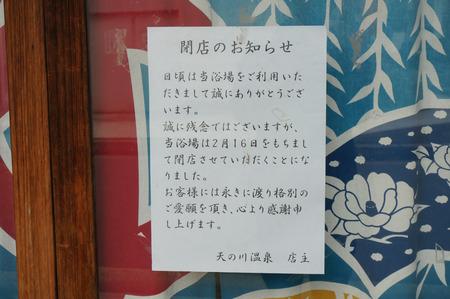 閉店のお知らせ
日頃は当浴場をご利用いた
だきまして誠にありがとうござ
います。
誠に残念ではございますが、
当浴場は2月16日をもちまし
て閉店させていただくことにな
りました。
お客様には永きに渡り格別の
ご愛顧を頂き、心より感謝申
し上げます。
天の川温泉 店主